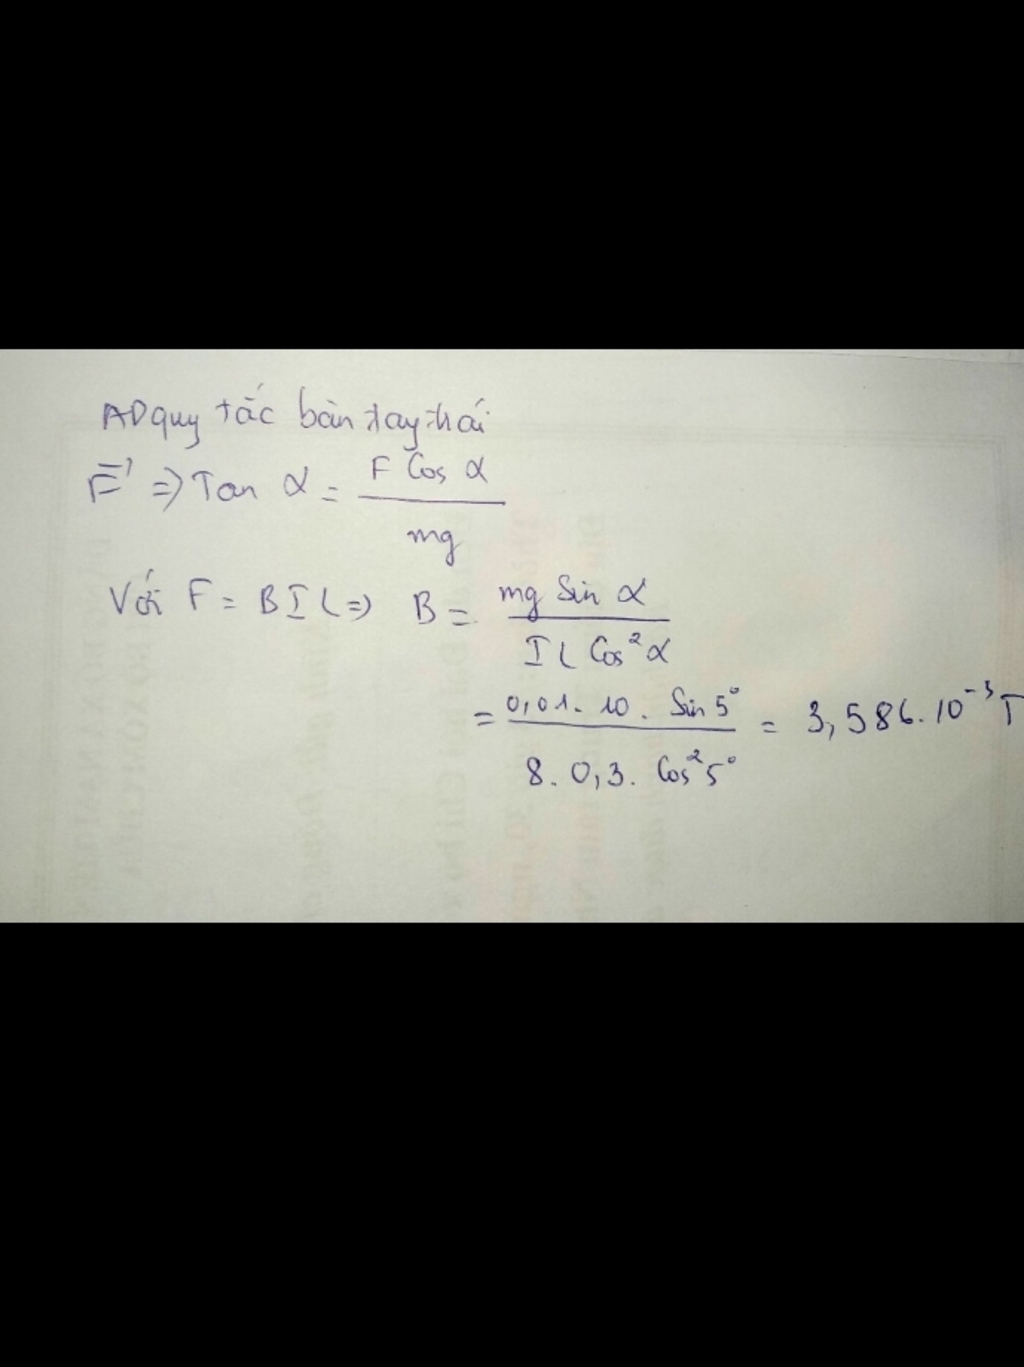 AD quy tắc bàn tay trái
F' => Tan α = F Cos α / mg
Với F = BIL => B = mg Sin α / I L Cos² α
= 0,01. 10 . Sin 5° / 8. 0,3. Cos² 5° = 3,586.10⁻³ T